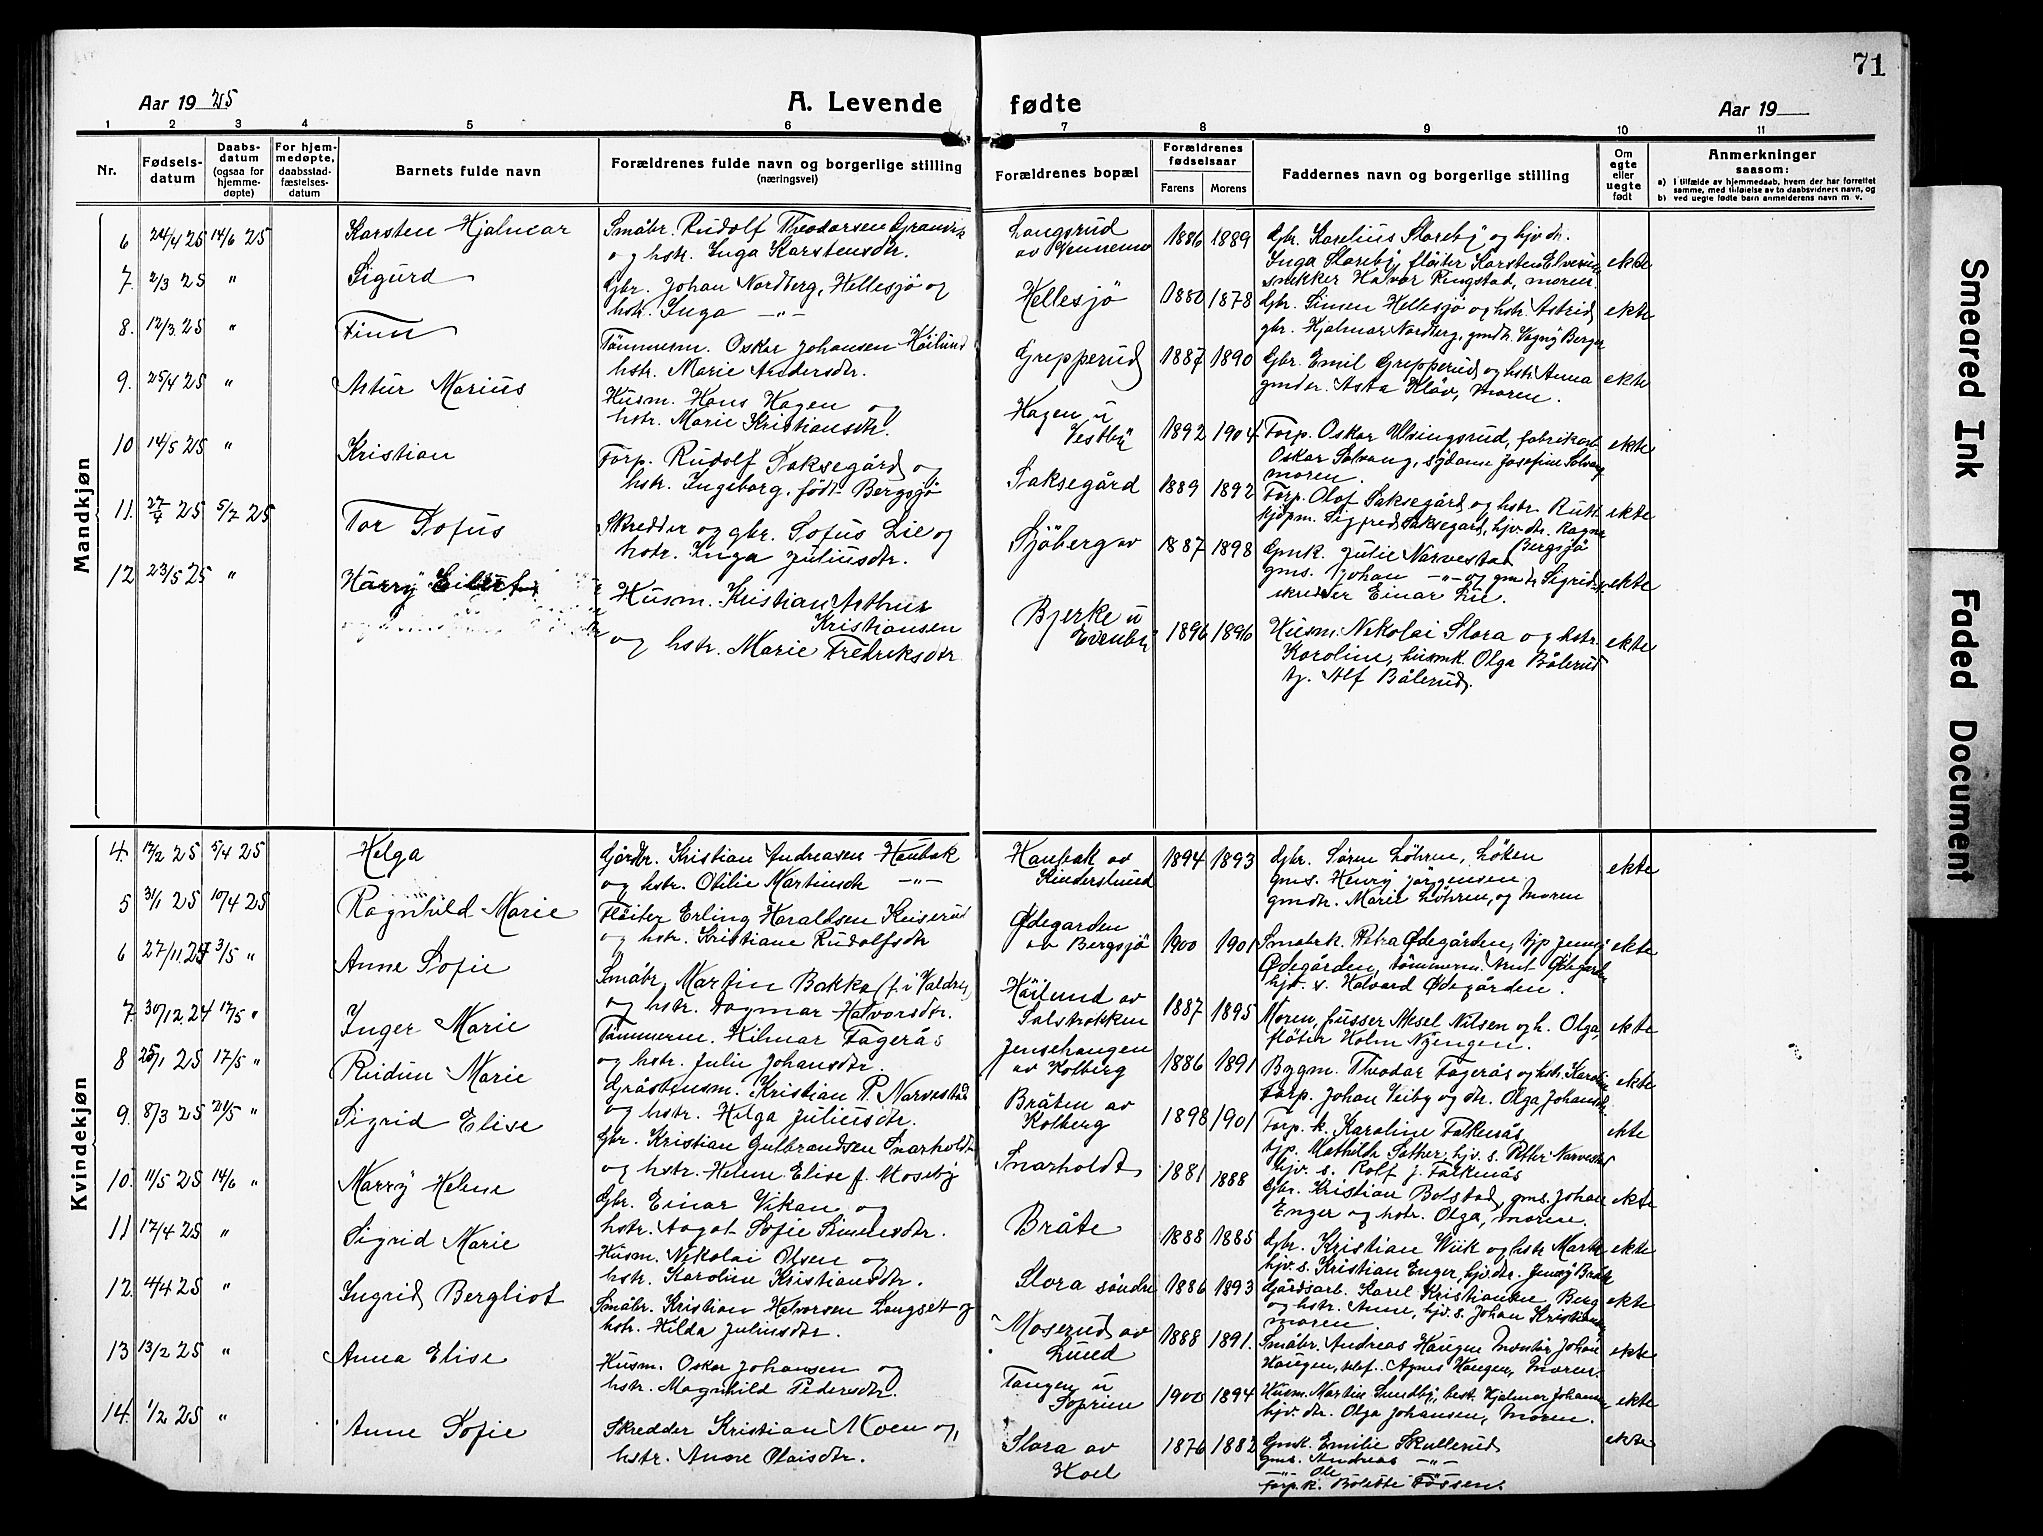 71
Aar 19 25
A. Levende fødte
Aar 19
1 2 3 4 5 6 7 8 9 10 11
Nr.
Fødsels-
datum
Daabs-
datum
(ogsaa for
hjemme-
døpte)
For hjem-
medøpte,
daabsstad-
fæstelses-
datum
Barnets fulde navn
Forældrenes fulde navn og borgerlige stilling
(næringsvei)
Forældrenes bopæl
Forældrenes
fødselsaar
Farens Morens
Faddernes navn og borgerlige stilling
Om
egte
eller
uegte
født
Anmerkninger
saasom:
a) I tilfælde av hjemmedaab, hvem der har forrettet
samme, med tilføielse av to daabsvidners navn, og
b) ved uegte fødte barn anmelderens navn m. v.
Mandkjøn
6 24/4 25 14/6 25 Karsten Hjalmar Småbr. Rudolf Theodorsen
og hstr. Inga Karstensdtr.
Langsrud
av 1886 1889 Gbr. Karelius Sloreby og hjv. dr.
Inga Sloreby, fløiter Karsten
snekker Halvor Ringstad, moren. ekte
7. 2/3 25 " Sigurd Gbr. Johan Nordberg, Hellesjö og
hstr. Inga —"—
Hellesjö 1880 1878 Gbr. Simen Hellesjö og hstr. Astrid,
gbr. Hjalmar Nordberg, gmdtr. Vagny Berger ekte
8. 12/3 25 " Finn Tömmerm. Oskar Johansen Höilund
hstr. Marie Andersdtr.
Grepperud 1887 1890 Gbr. Emil Grepperud og hstr. Anna
gmdtr. Asta Kløv, moren. ekte
9. 25/4 25 " Artur Marius Husm. Hans Hagen og
hstr. Marie Kristiansdtr.
Hagen u
Vestby 1892 1904 Forp. Oskar Ulsingsrud, fabrikarb.
Oskar Solvang, sydame Josefine Solvang
moren. ekte
10 14/5 25 " Kristian Forp. Rudolf Saksegård og
hstr. Ingeborg, født Bergsjö
Saksegård 1889 1892 Forp. Olof Saksegård og hstr. Rutt
kjöpm. Sigfred Saksegård, hjv. dtr. Ragna
Bergsjö ekte
11. 27/4 25 5/7 25 Tor Sofus Skredder og gbr. Sofus Lie og
hstr. Inga Juliusdtr.
Sjöberg av 1887 1898 Gmk. Julie Narvestad
gms. Johan —"— og gmdtr. Sigrid
skredder Einar Lie. ekte
12 23/5 25 " Harry Eilert Husm. Kristian Arthur
Kristiansen
og hstr. Marie Fredriksdtr
Bjerke u
Evenby 1896 1896 Husm. Nikolai Slora og hstr.
Karoline, husmk. Olga Bålerud
tj. Alf Bålerud. ekte
Kvindekjøn
4. 12/2 25 5/4 25 Helga Gårdbr. Kristian Andreasen Haubak
og hstr. Otilie Martinsdtr —"—
Haubak av
Kinderslund 1894 1893 Gbr. Søren Löhren, Löken
gms. Henry Jörgensen,
gmdtr. Marie Löhren, og moren ekte
5 31/1 25 10/4 25 Ragnhild Marie Fløiter Erling Haraldsen Keiserud
og hstr. Kristiane Rudolfsdtr
Ødegarden
av Bergsjö 1900 1901 Småbrk. Petra Ødegården, tjp Jenny
Ødegården, tömmerm. Arnt Ødegården
hjv. s. Halvard Ødegården. ekte
6 27/11.24 3/5 " Anne Sofie Småbr. Martin Bakka (f. i Valdres)
og hstr. Dagmar Halvorsdtr.
Höilund av
Solstrokken 1887 1895 Moren, pusser Aksel Nilsen og h. Olga,
flöter Holm Nyengen. ekte
7. 30/12 24 17/5 " Inger Marie Tømmerm. Hilmar Fagerås
og hstr. Julie Johansdtr.
Jensehaugen
av Kolberg 1886 1891 Byggm. Theodor Fagerås og hstr. Karoline
Forp. Johan Veiby og dtr. Olga Johansdtr. ekte
8 25/1 25 17/5 " Reidun Marie Gråstensm. Kristian P. Narvestad
og hstr. Helga Juliusdtr.
Bråten av
Kolberg 1898 1901 Forp. k. Karoline Falkenås,
tjp. Mathilde Sather, hjv. s. Petter Narvestad
hjv. s. Rolf J. Falkenås ekte
9. 8/3 25 21/5 " Sigrid Elise Gbr. Kristian Gulbrandsen Snarholdt
og hstr. Helene Elise f. Moseby
Snarholdt 1881 1888 Gbr. Kristian Bolstad, gms. Johan
Enger og hstr. Olga, moren. ekte
10. 11/5 25 14/6 " Marry Helene Gbr. Einar Vikan og
hstr. Aagot Sofie Simensdtr.
Bråte 1888 1885 Gbr. Kristian Wiik og hstr Marte
hjv. s. Kristian Enger, hjv. dtr. Jenny Bråte ekte
11 12/4 25 " Sigrid Marie Husm. Nikolai Olsen og
hstr. Karoline Kristiansdtr.
Slora söndre 1886 1893 Gårdsarb. Karel Kristiansen Berg
og hstr. Anne, hjv. s. Johan Kristiansen
moren. ekte
12. 4/4 25 " Ingrid Bergliot Småbr. Kristian Halvorsen Langset og
hstr. Hilda Juliusdtr.
Moserud av
Lund 1888 1891. Småbr. Andreas Haugen Montör Johan
Haugen, telef. Agnes Haugen, Moren. ekte
13 13/2 25 " Anna Elise Husm. Oskar Johansen og
hstr. Magnhild Pedersdtr.
Tangen u
Toprum 1900 1894 Husm. Martin Sundby, best. Hjalmar Johansen
hjv. dtr. Olga Johansen, Moren. ekte
14. 1/2 25 " Anne Sofie Skredder Kristian Moen og,
hstr. Anne Olaisdtr.
Slora av
Hoel 1876 1882 Gmk. Emilie Skullerud
gms. Andreas —"—
—"— Ole
forp. k. Bolette Fossen. ekte
Smeared Ink
Faded Document